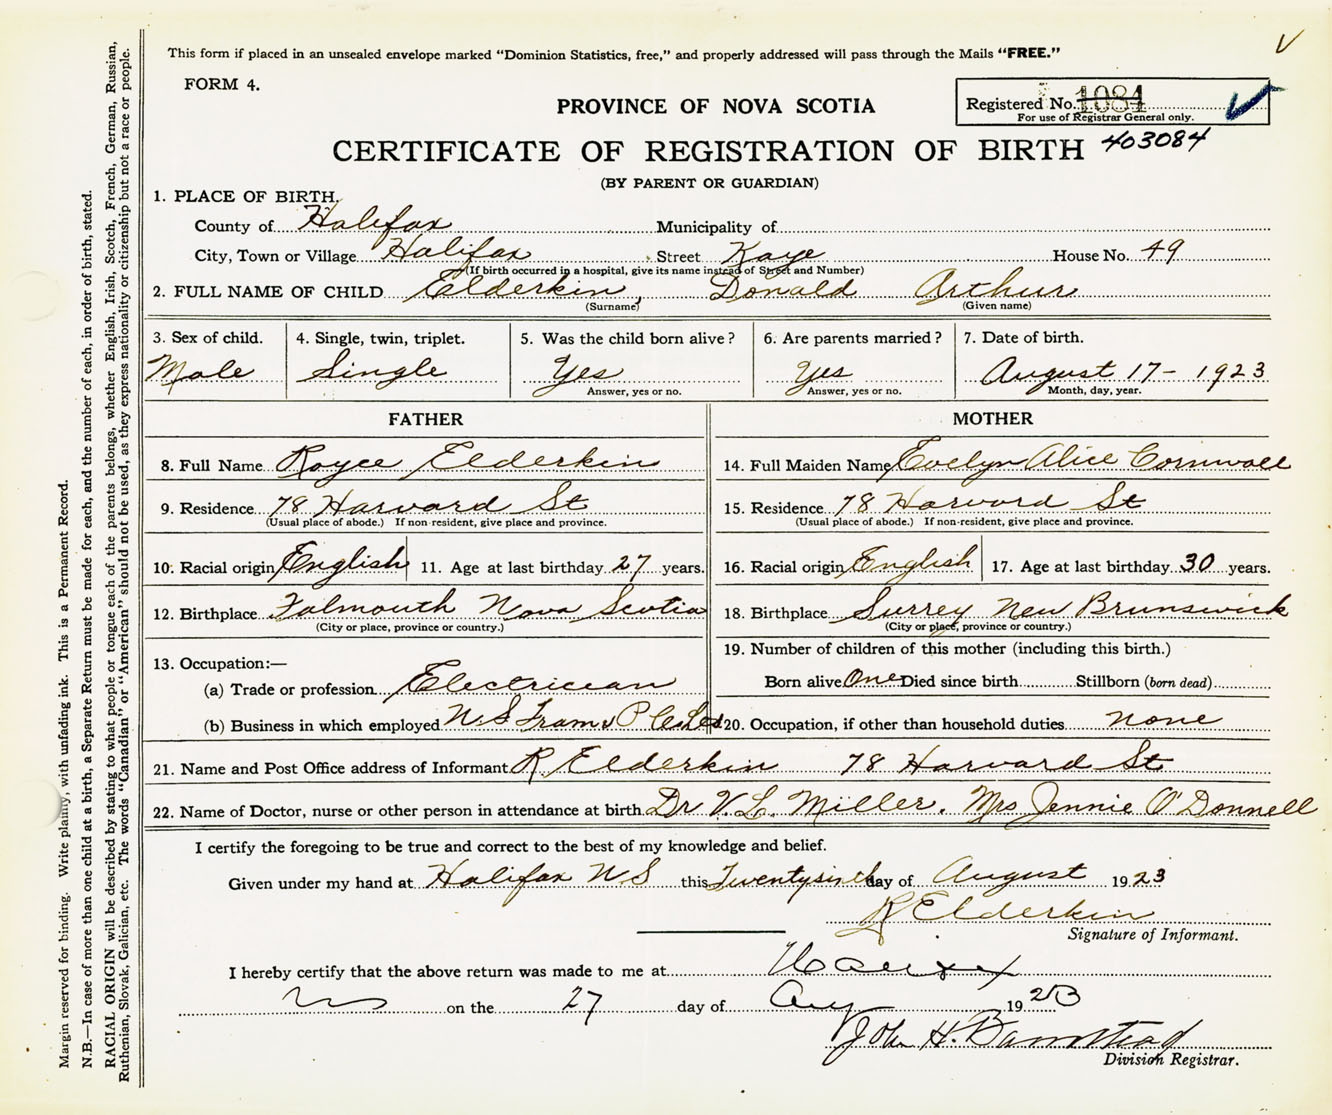 This form if placed in an unsealed envelope marked "Dominion Statistics, free," and properly addressed will pass through the Mails "FREE."
FORM 4.
PROVINCE OF NOVA SCOTIA
Registered No. 1084
For use of Registrar General only.
403084
CERTIFICATE OF REGISTRATION OF BIRTH
(BY PARENT OR GUARDIAN)
1. PLACE OF BIRTH.
County of Halifax Municipality of
City, Town or Village Halifax Street Kaye House No. 49
(If birth occurred in a hospital, give its name instead of Street and Number)
2. FULL NAME OF CHILD Elderkin, Donald Arthur
(Surname) (Given name)
3. Sex of child. 4. Single, twin, triplet. 5. Was the child born alive? 6. Are parents married? 7. Date of birth.
Male Single Yes Yes August 17- 1923
Answer, yes or no. Answer, yes or no. Month, day, year.
FATHER
8. Full Name Royce Elderkin
9. Residence 78 Harvard St
(Usual place of abode.) If non-resident, give place and province.
10. Racial origin English 11. Age at last birthday 27 years.
12. Birthplace Falmouth Nova Scotia
(City or place, province or country.)
13. Occupation:—
(a) Trade or profession Electricean
(b) Business in which employed N.S Tram
MOTHER
14. Full Maiden Name Evelyn Alice Cornwall
15. Residence 78 Harvard St
(Usual place of abode.) If non-resident, give place and province.
16. Racial origin English 17. Age at last birthday 30 years.
18. Birthplace Surrey New Brunswick
(City or place, province or country.)
19. Number of children of this mother (including this birth.)
Born alive One Died since birth Stillborn (born dead)
20. Occupation, if other than household duties none
21. Name and Post Office address of Informant R. Elderkin 78 Harvard St
22. Name of Doctor, nurse or other person in attendance at birth Dr V. L. Miller. Mrs Jennie O'Donnell
I certify the foregoing to be true and correct to the best of my knowledge and belief.
Given under my hand at Halifax N S this Twentysixth day of August 1923
R Elderkin
Signature of Informant.
I hereby certify that the above return was made to me at Halifax
NS on the 27 day of Aug 1923
John H. Barnstead
Division Registrar.
Margin reserved for binding. Write plainly, with unfading ink. This is a Permanent Record.
N.B.—In case of more than one child at a birth, a Separate Return must be made for each, and the number of each, in order of birth, stated.
RACIAL ORIGIN will be described by stating to what people or tongue each of the parents belongs, whether English, Irish, Scotch, French, German, Russian,
Ruthenian, Slovak, Galician, etc. The words "Canadian" or "American" should not be used, as they express nationality or citizenship but not a race or people.